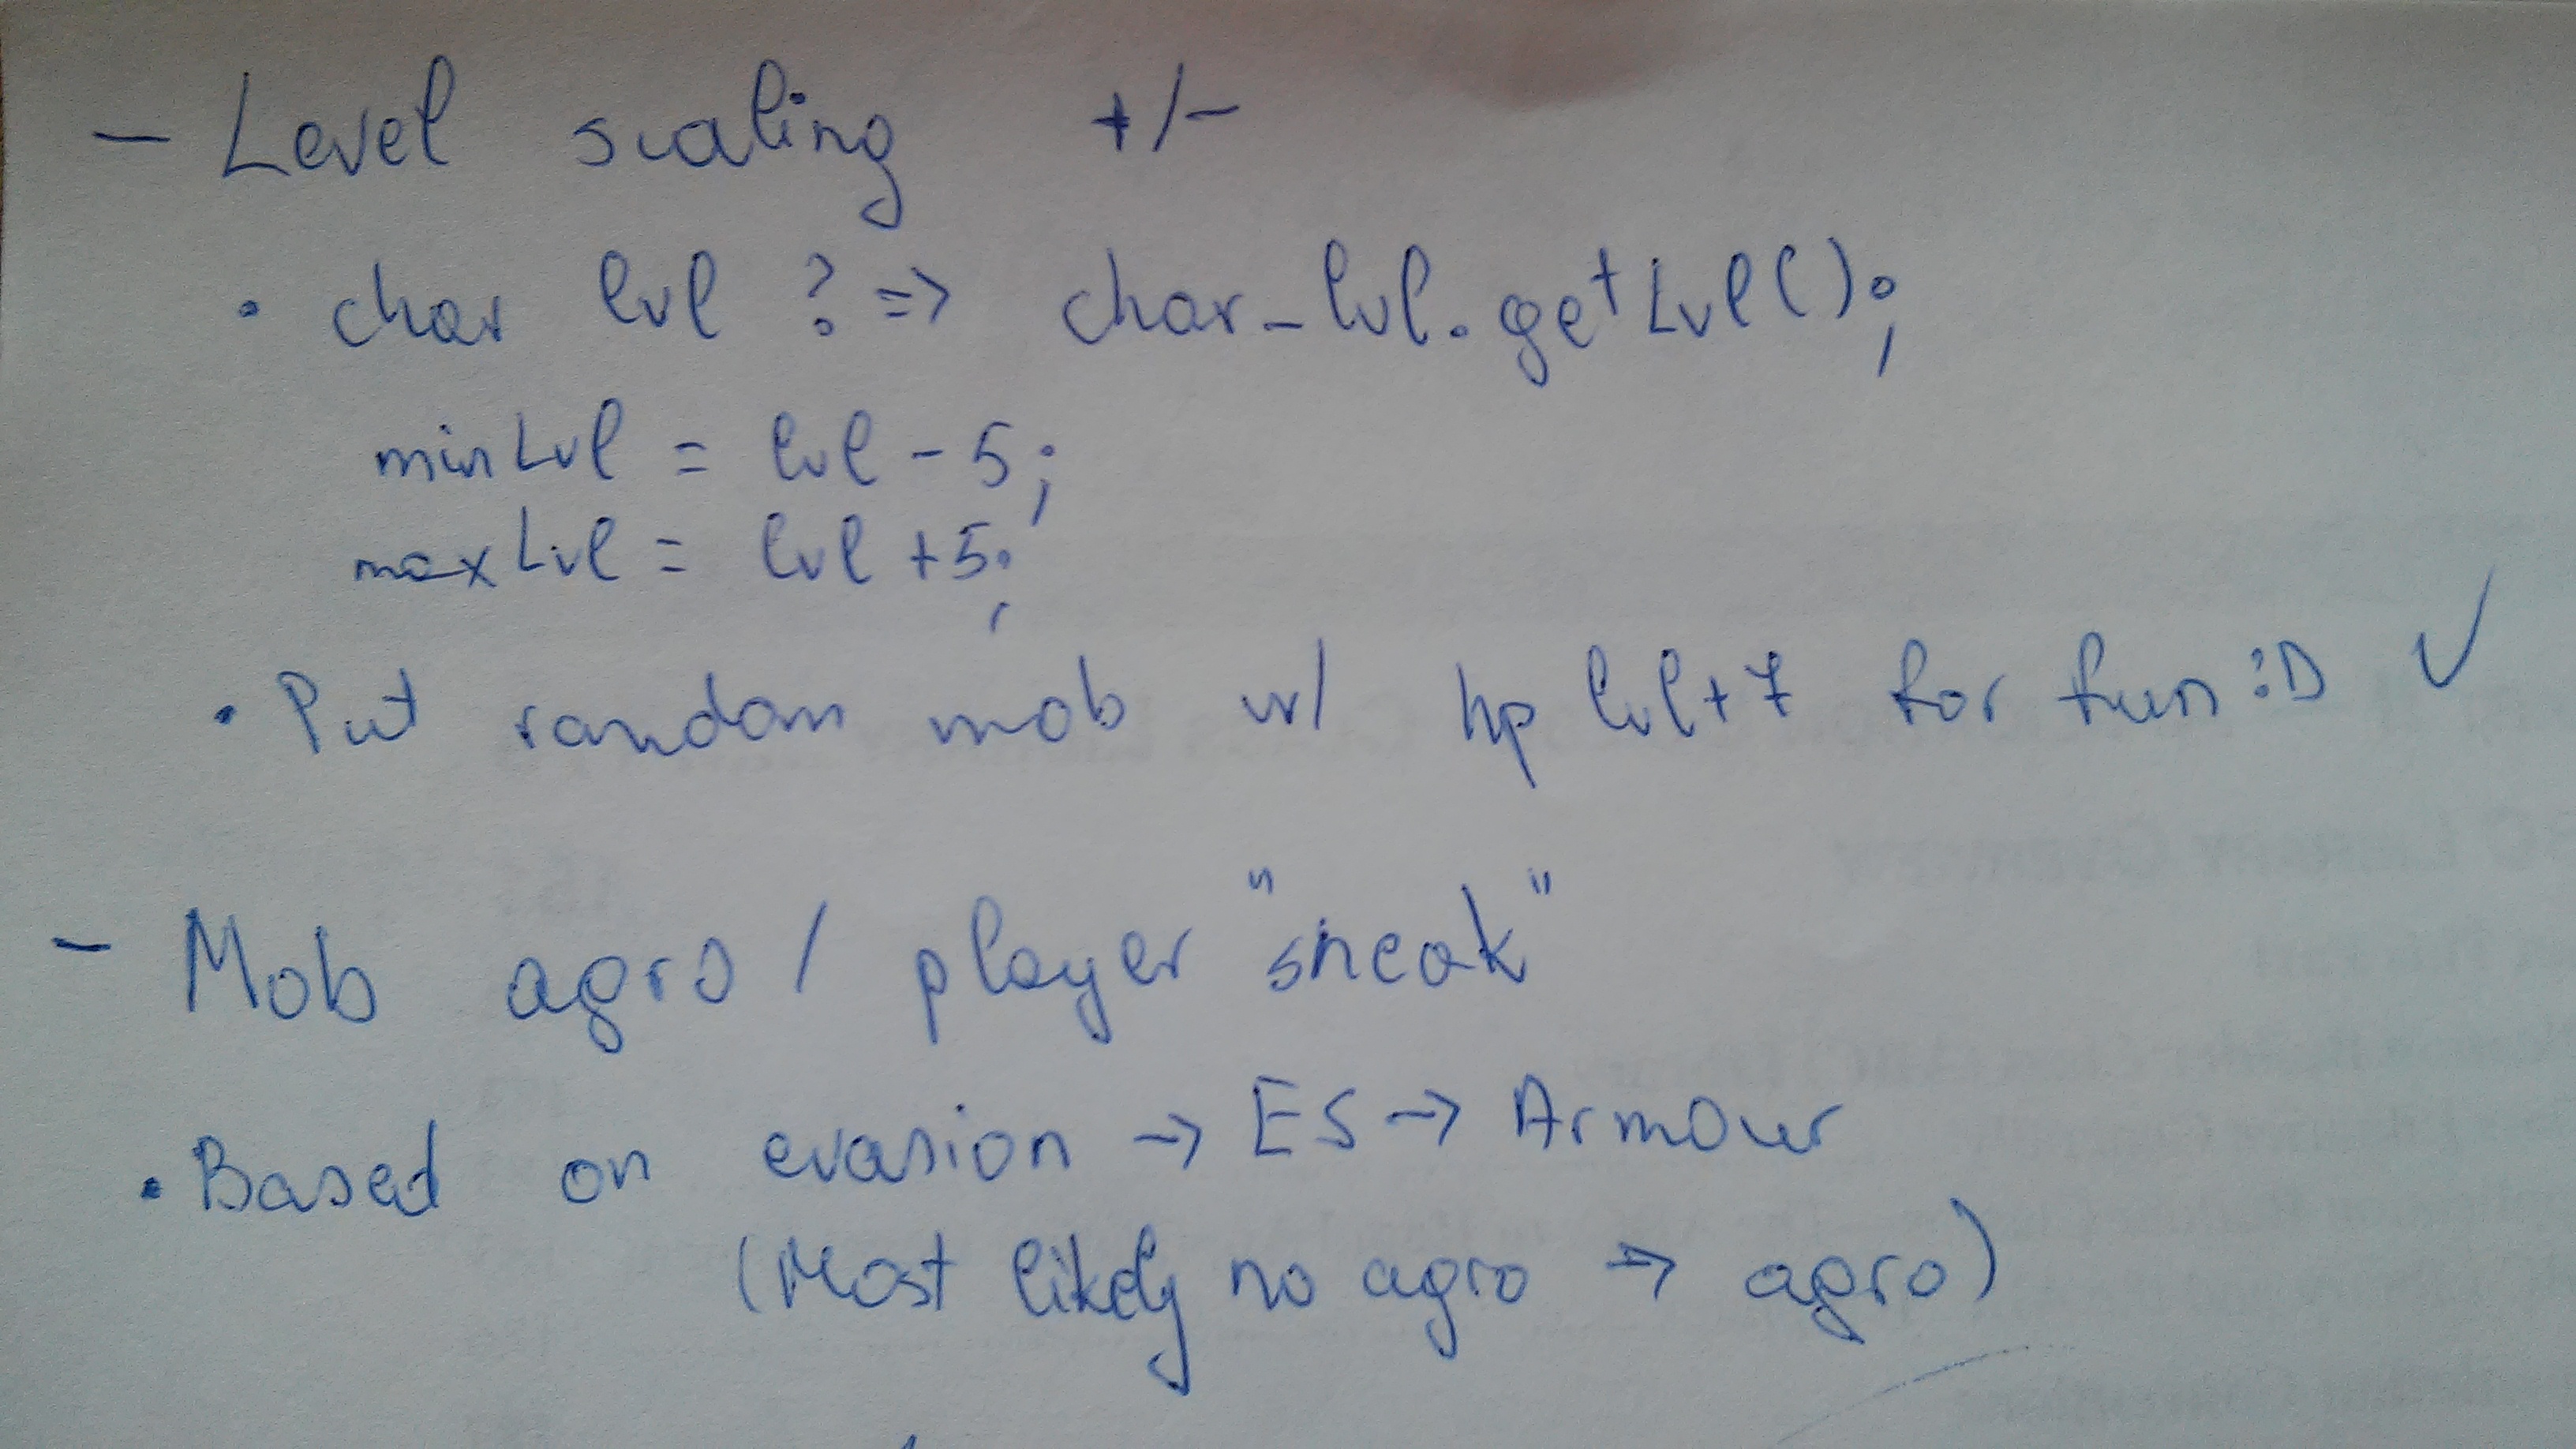 - Level scaling +/-
• char lvl ? => char_lvl.getLvl();
minLvl = lvl - 5;
maxLvl = lvl + 5;
• Put random mob w/ hp lvl+7 for fun :D ✓
- Mob agro / player "sneak"
• Based on evasion -> ES -> Armour
(Most likely no agro -> agro)